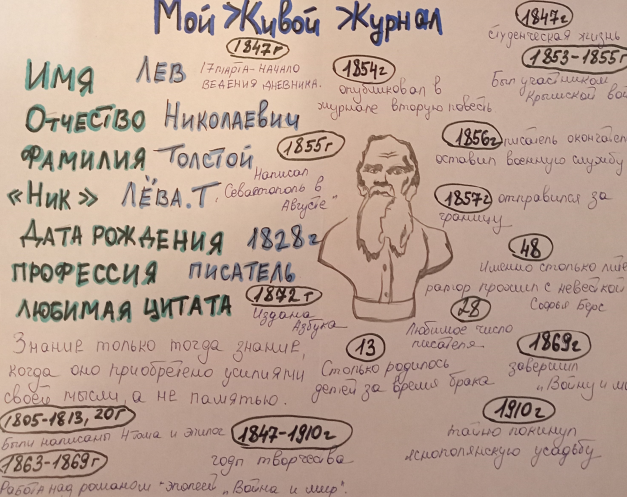 Мой Живой Журнал
Имя Лев
Отчество Николаевич
Фамилия Толстой
«Ник» Лёва.Т.
Дата рождения 1828г
Профессия писатель
Любимая цитата
Знание только тогда знание,
когда оно приобретено усилиями
своей мысли, а не памятью.
1847г
17 марта - начало
ведения дневника.
1854г
опубликовал в
журнале вторую повесть
1847г
студенческая жизнь
1853-1855г
Был участником
Крымской
1855г
Написал
"Севастополь в
Августе"
1856г писатель
оставил военную службу
1857г отправился за
границу
48
Именно столько
прожил с
Софья Берс
28
Любимое число
писателя.
1872г
Издана
Азбука
13
Столько родилось
детей за время брака
1869г
завершил
"Войну и
1805-1813, 20г
Были написаны 4 тома и эпилог
1847-1910г
годы творчества
1910г
тайно покинул
яснополянскую усадьбу
1863-1869г
Работа над романом-эпопеей "Война и мир".